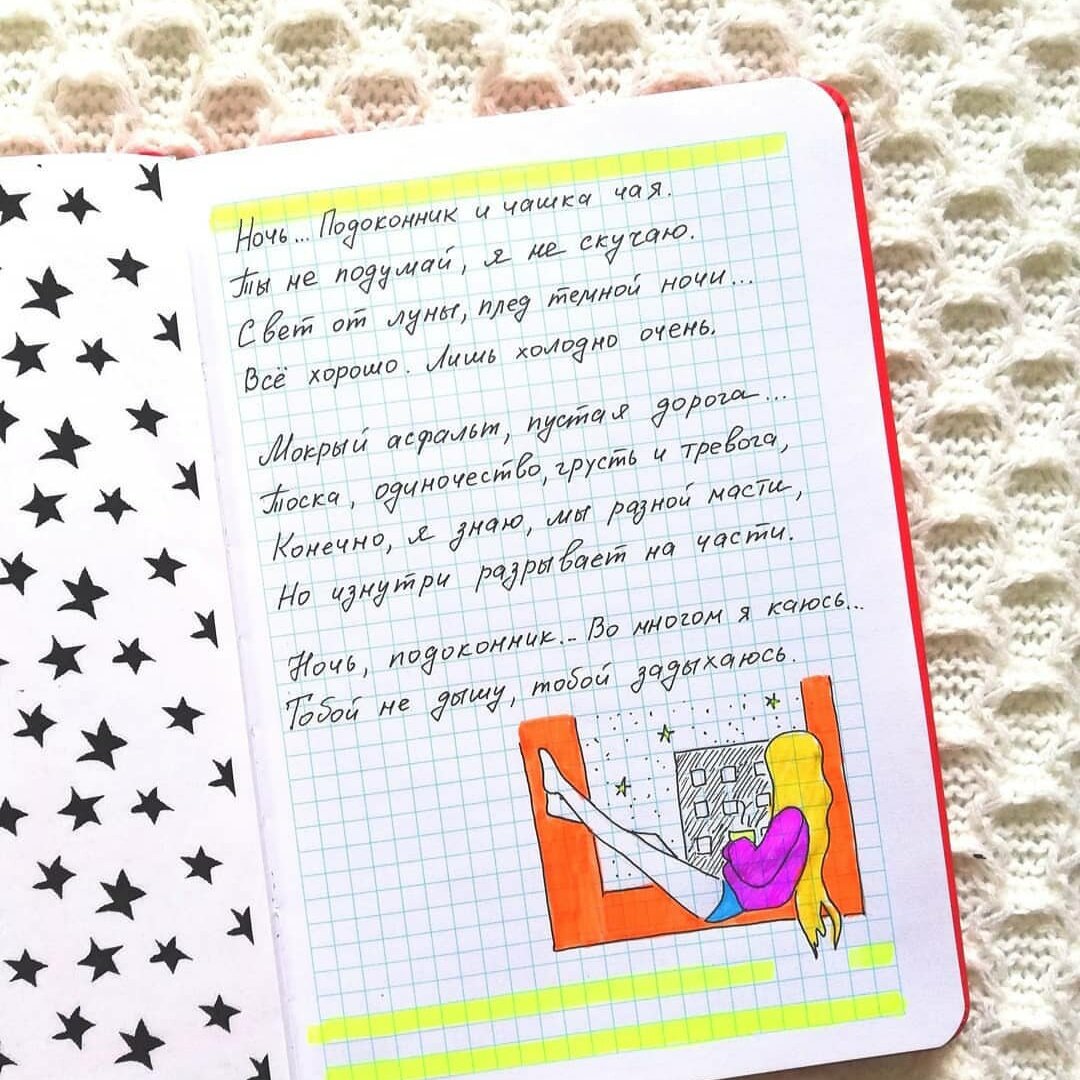 Ночь... Подоконник и чашка чая.
Ты не подумай, я не скучаю.
Свет от луны, плед темной ночи...
Всё хорошо. Лишь холодно очень.
Мокрый асфальт, пустая дорога...
Тоска, одиночество, грусть и тревога,
Конечно, я знаю, мы разной масти,
Но изнутри разрывает на части.
Ночь, подоконник... Во многом я каюсь...
Тобой не дышу, тобой задыхаюсь.